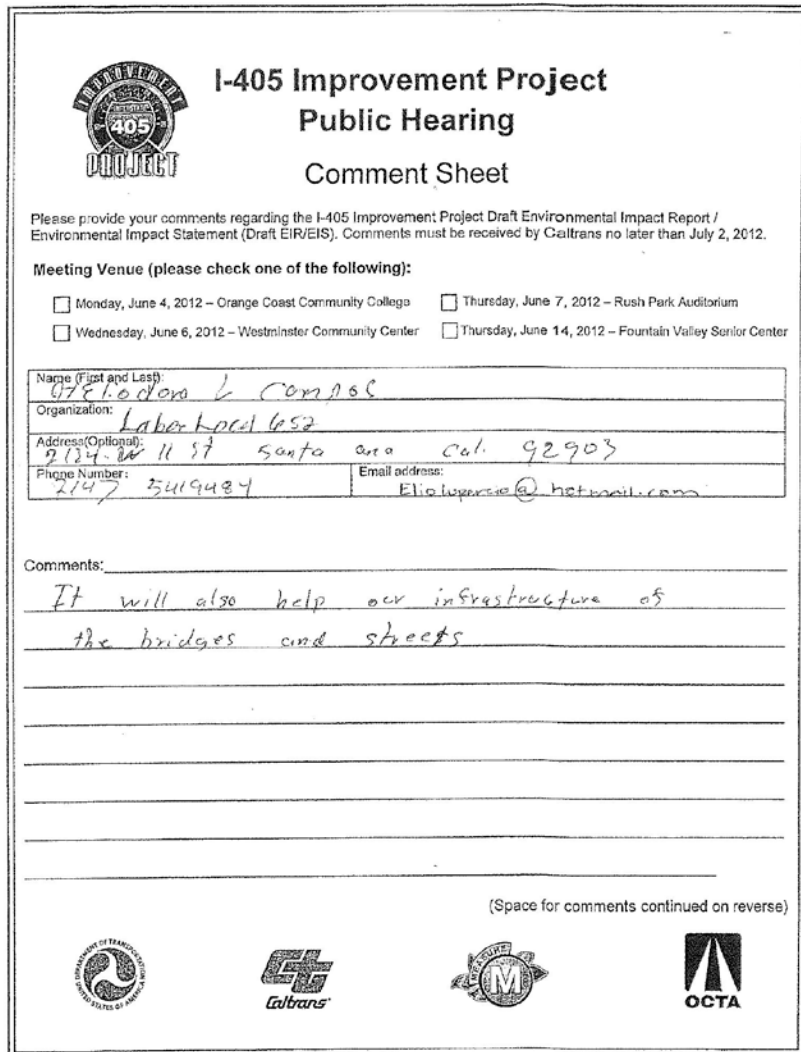 IMPROVEMENT
INTERSTATE
405
PROJECT
I-405 Improvement Project
Public Hearing
Comment Sheet
Please provide your comments regarding the I-405 Improvement Project Draft Environmental Impact Report /
Environmental Impact Statement (Draft EIR/EIS). Comments must be received by Caltrans no later than July 2, 2012.
Meeting Venue (please check one of the following):
Monday, June 4, 2012 – Orange Coast Community College
Thursday, June 7, 2012 – Rush Park Auditorium
Wednesday, June 6, 2012 – Westminster Community Center
Thursday, June 14, 2012 – Fountain Valley Senior Center
Name (First and Last):
L
Organization:
Labor Local 652
Address(Optional):
11 St Santa ana Cal. 92903
Phone Number:
5419484
Email address:
Elioluperсio@hotmail.com
Comments:
It will also help our infrastructure of
the bridges and streets
(Space for comments continued on reverse)
DEPARTMENT OF TRANSPORTATION
UNITED STATES OF AMERICA
Caltrans
MEASURE
M
OCTA